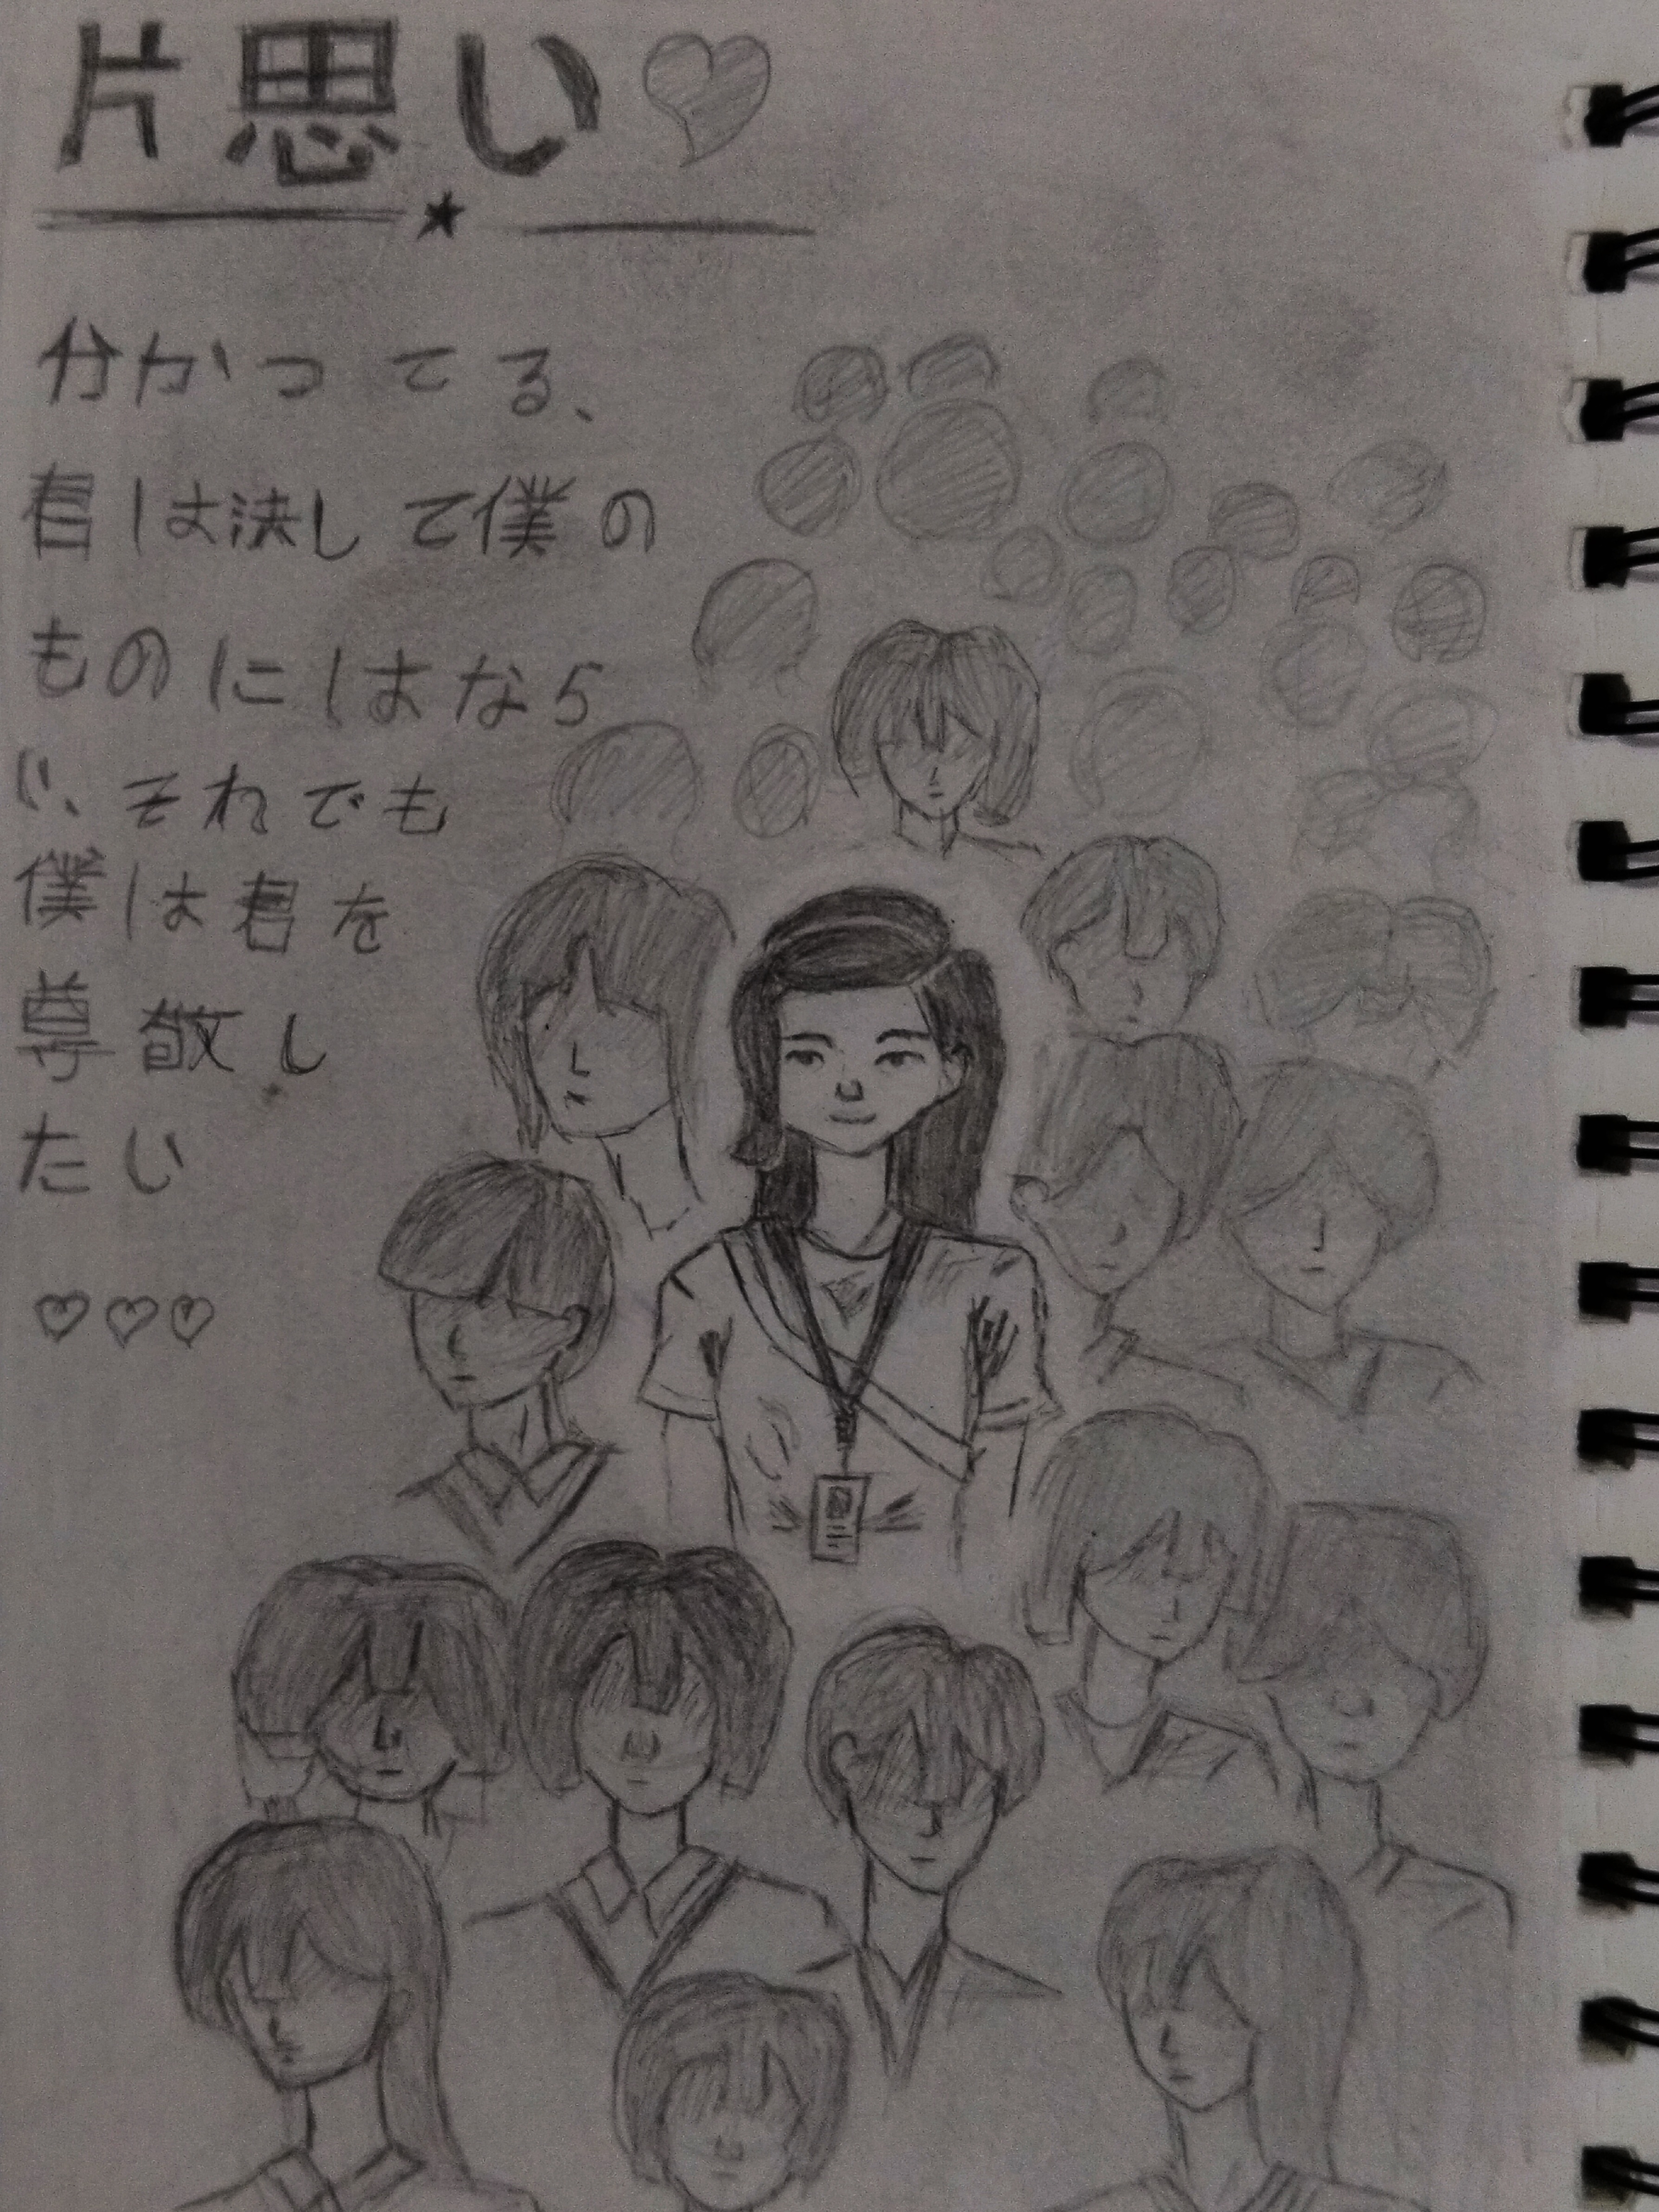 片思い♡
分かってる、
君は決して僕の
ものにはなら
い、それでも
僕は君を
尊敬し
たい
♡♡♡